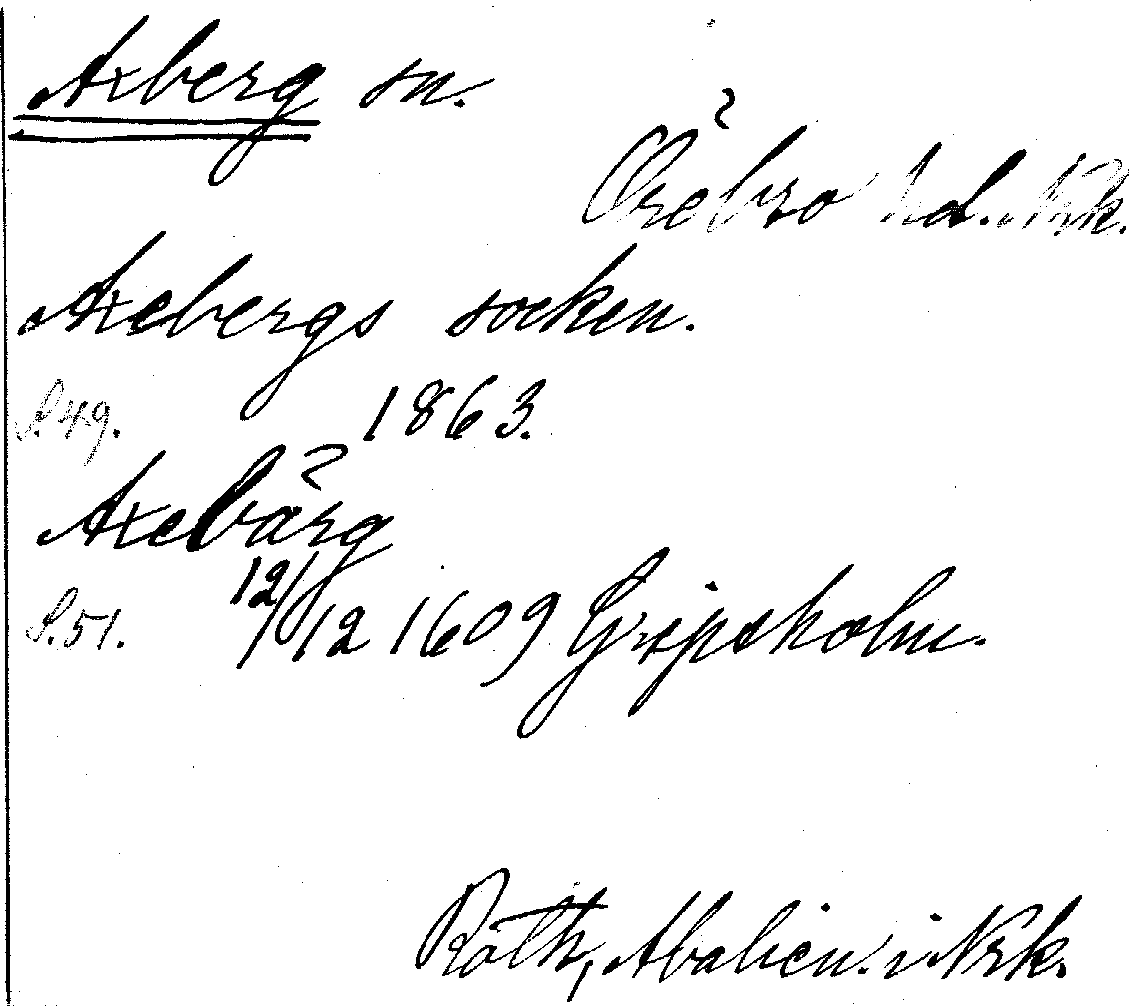 Axberg sn.
Örebro hd. Nrk.
Axebergs socken.
S. 49. 1863.
Axebärg
S. 51. 12/12 1609 Gripsholm.
Röth, Abalien. i Nrk.